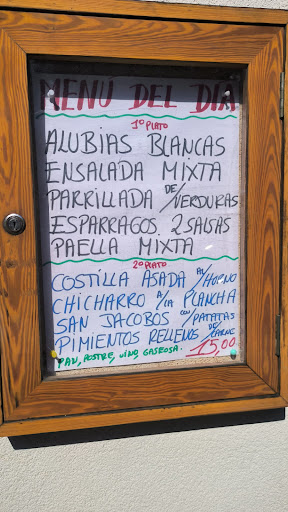 MENÚ DEL DÍA
1º PLATO
ALUBIAS BLANCAS
ENSALADA MIXTA
PARRILLADA DE/VERDURAS
ESPARRAGOS 2 SALSAS
PAELLA MIXTA
2º PLATO
COSTILLA ASADA AL/HORNO
CHICHARRO A/LA PLANCHA
SAN JACOBOS CON/PATATAS
PIMIENTOS RELLENOS DE/CARNE
PAN, POSTRE, VINO, GASEOSA. 15,00